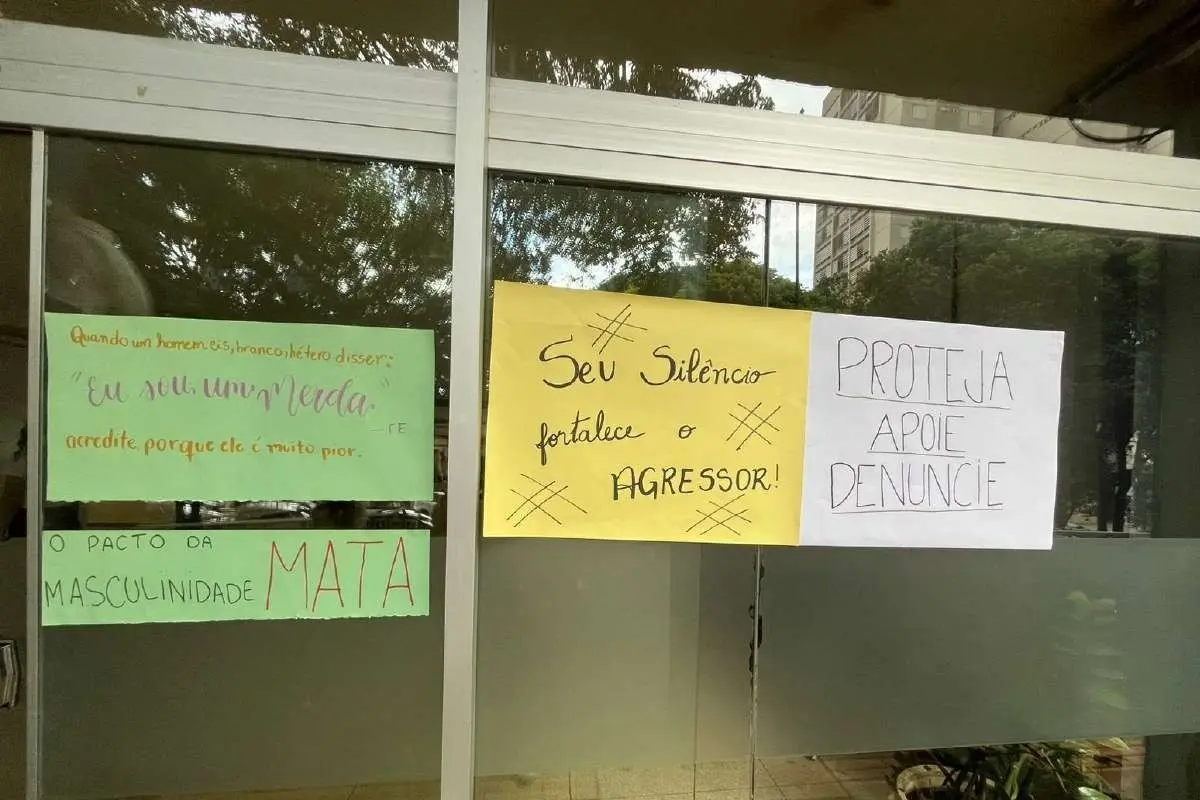 Quando um homem cis, branco, hétero disser:
"Eu sou um merda"
acredite, porque ele é muito pior.
O PACTO DA
MASCULINIDADE MATA
Seu Silêncio
fortalece o
AGRESSOR!
PROTEJA
APOIE
DENUNCIE